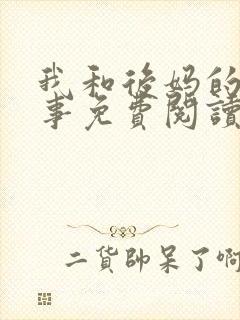 我和後妈的
事免費閱讀
二貨帥呆了啊